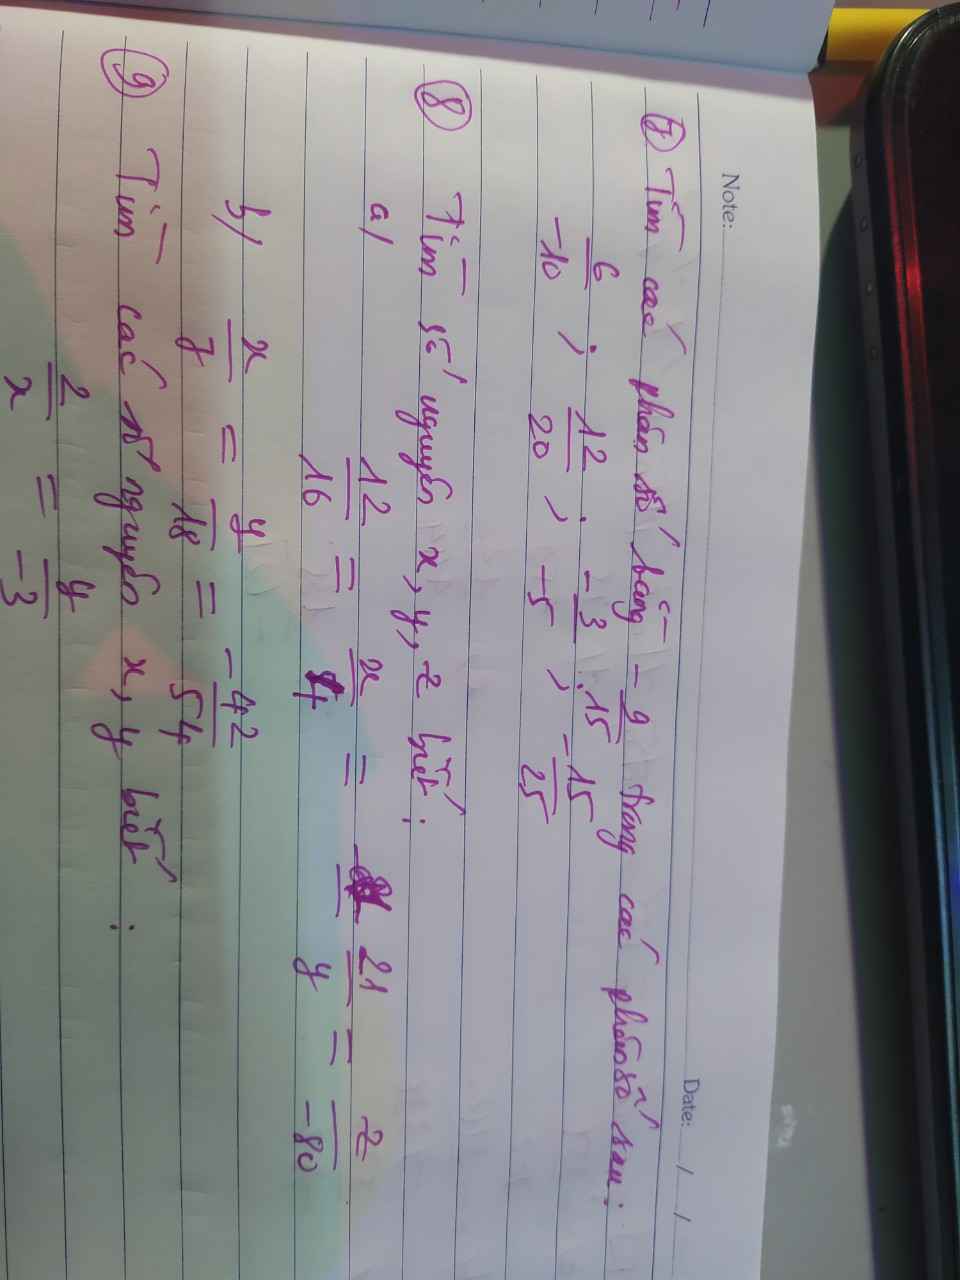 Note: Date: / /
⑦ Tìm các phân số bằng -9/15 trong các phân số sau:
6/-10 ; 12/20 ; -3/-5 ; -15/25
⑧ Tìm số nguyên x, y, z biết:
a/ 12/16 = x/4 = 21/y = z/-80
b/ x/7 = y/18 = -42/54
⑨ Tìm các số nguyên x, y biết:
2/x = y/-3